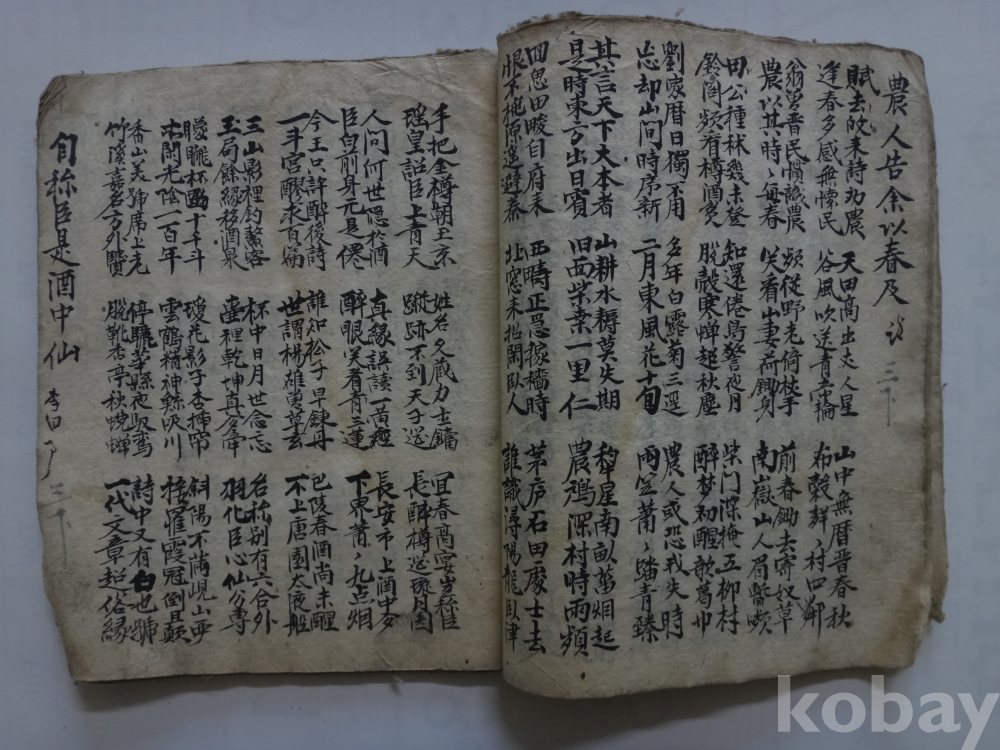 農人告余以春及 詩 三下
賦去皈来詩勸農
逢春多感無懷民
天田高出丈人星
谷風吹送青
山中無曆晋春秋
布穀
村四隣
翁皆晋民慣識農
農以其時〃每春
頻從野老倚杖手
笑看山妻荷鋤身
前春鋤去寄奴草
南嶽山人眉暫嚬
田公種秫幾未登
鈴閣頻有樽酒貧
知還倦鳥警夜月
脫殼寒蟬超秋塵
柴門深掩五柳村
醉梦初醒歌葛巾
劉家曆日獨不用
忘却山間時序新
多年白露菊三逕
二月東風花十旬
農人或恐我失時
兩笠蕭〃踏青臻
其言天下大本者
是時東方出日賓
山耕水耨莫失期
旧面柴桑一里仁
秾星南畝蒭烟起
農鴉深村時雨頻
田思田畯自府来
恨不桃源逢避秦
西疇正急稼穡時
北窓来招閑臥人
茅庐石田處士去
誰識潯陽龍臥津
手把金樽朝玉京
瑤皇詔臣上青天
姓名久蔵力士鐺
蹤跡不到天子船
宜春高宴
称臣
長醉樽
月圓
人間何世隠於酒
臣皇前身元是僊
真緣誤讀一黄經
醉眼笑看青三蓮
長安市上酒中家
下界蕭〃九点烟
今王只許醉後詩
一斗宮醪求百篇
誰知松子早鍊丹
世謂楊雄草玄
巴陵春酒尚未醒
不上唐園大夜船
三山影裡釣鰲客
玉局餘緣移酒泉
杯中日月世念忘
壷裡乾坤真
名称别有六合外
羽化臣心仙分專
朦朧杯
十千斗
本閑光陰一百年
瓊花影子杏
雲鶴精神
川
斜陽不滿峴山
接䍦霞冠倒且顛
香山美號席上老
竹溪嘉名方外賢
停驢華縣夜馭鸞
脫靴香亭秋蛻蟬
詩中又有白也號
一代文章超俗緣
自称臣是酒中仙 李白 三下
kobay